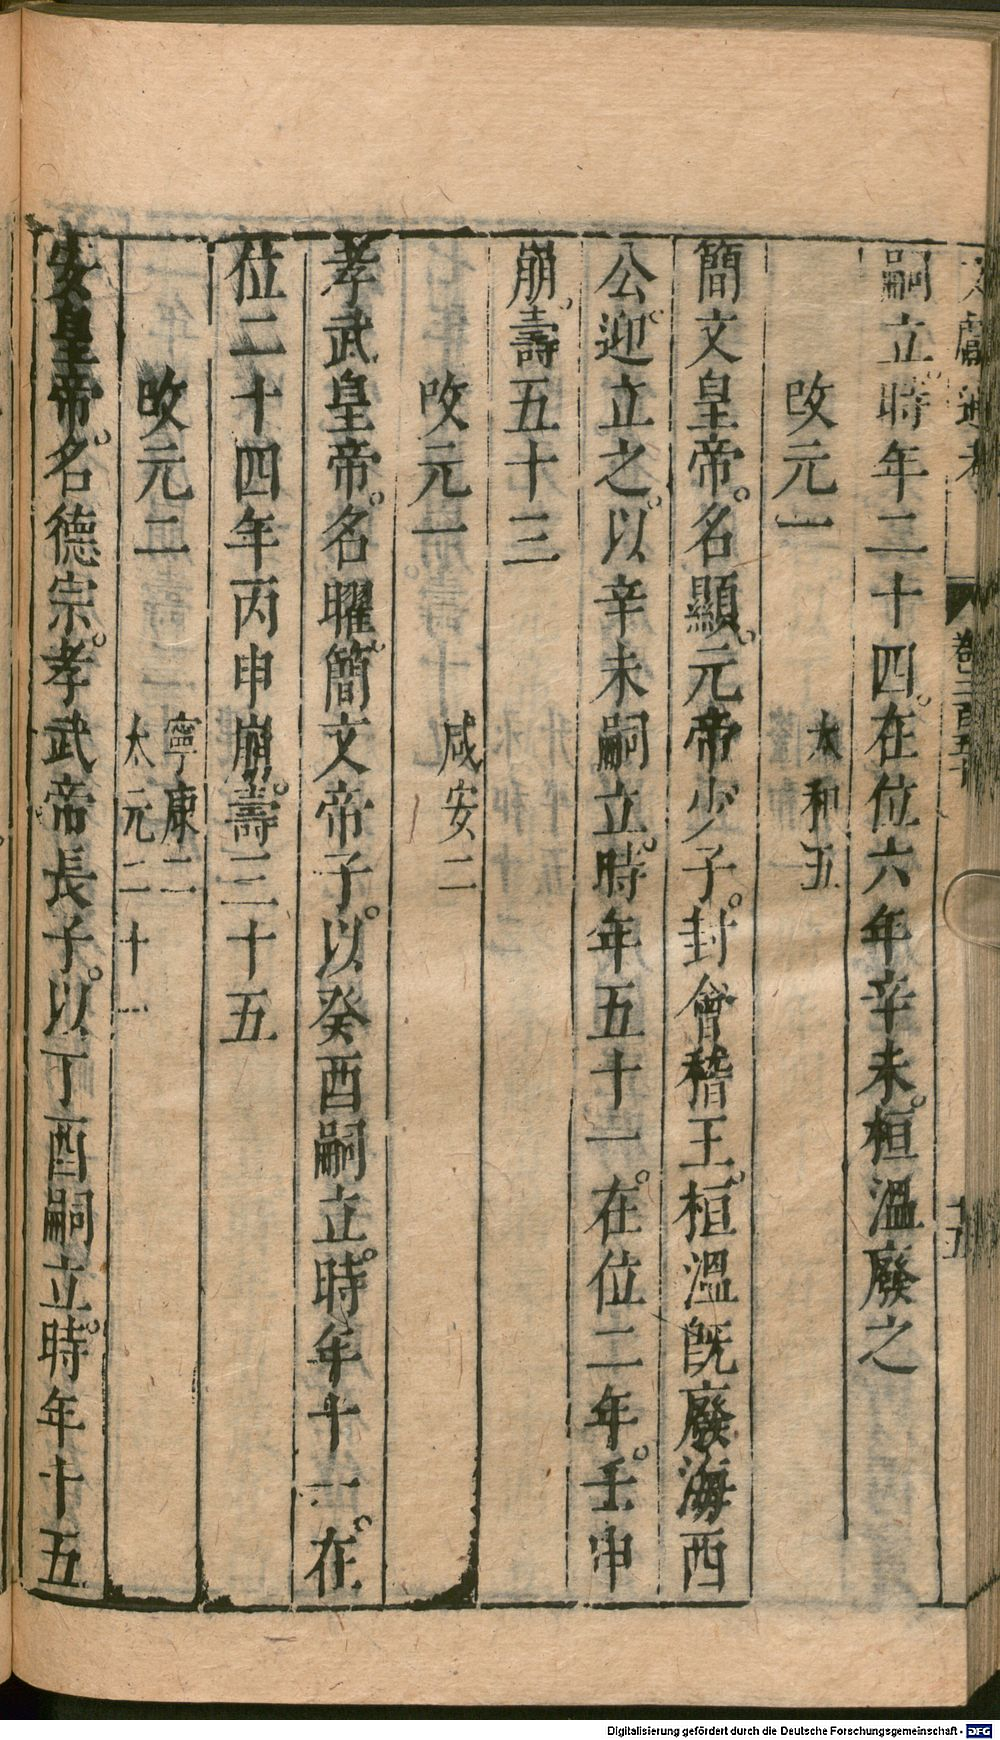 文獻通考 卷二百五十 十五
嗣立。時年二十四。在位六年辛未。桓溫廢之
改元一 太和五
簡文皇帝。名顯。元帝少子。封會稽王。桓溫旣廢海西
公。迎立之。以辛未嗣立。時年五十一。在位二年。壬申
崩。壽五十三
改元一 咸安二
孝武皇帝。名曜。簡文帝子。以癸酉嗣立。時年十一。在
位二十四年丙申崩。壽三十五
改元二 寧康二
太元二十一
安皇帝。名德宗。孝武帝長子。以丁酉嗣立。時年十五
Digitalisierung gefördert durch die Deutsche Forschungsgemeinschaft - DFG